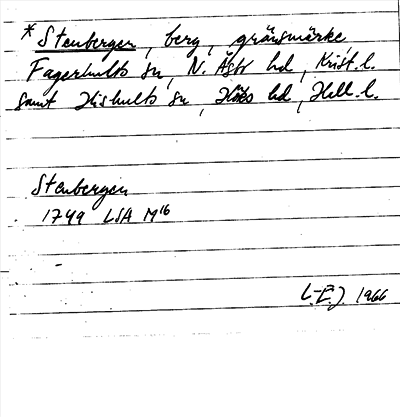 * Stenbergen, berg, gränsmärke
Fagerhults sn, N. Åsbo hd, Krist. l.
samt Hishults sn, Höks hd, Hall. l.
Stenbergen
1749 LSA M16
L-E.J. 1966